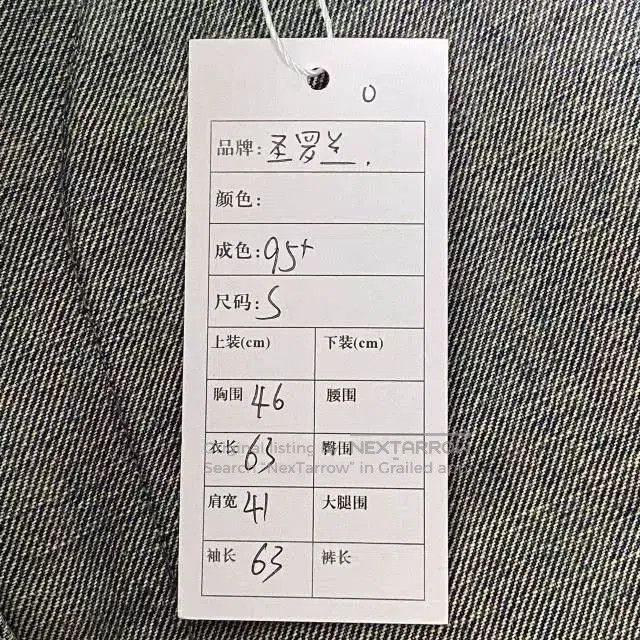 0
品牌: 圣罗兰.
颜色:
成色: 95+
尺码: S
上装(cm) 下装(cm)
胸围 46 腰围
衣长 63 臀围
肩宽 41 大腿围
袖长 63 裤长
Original listing NEXTARROW
Search "NexTarrow" in Grailed